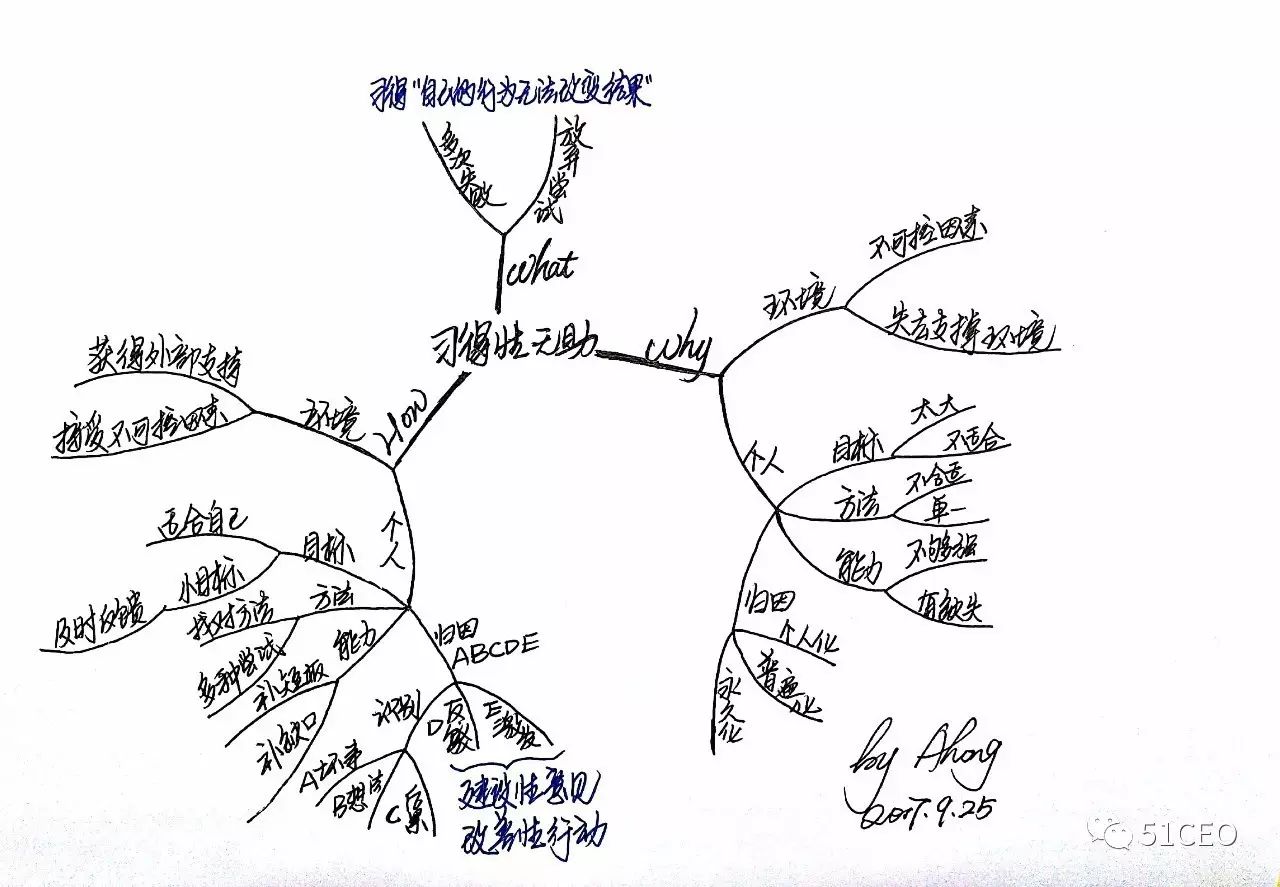 习得"自己的行为无法改变结果"
多次失败
放弃尝试
What
习得性无助
Why
环境
不可控因素
失去支撑环境
个人
目标
太大
不适合
方法
不合适
单一
能力
不够强
有缺失
归因
个人化
普遍化
永久化
How
环境
获得外部支持
接受不可控因素
个人
目标
适合自己
小目标
及时反馈
方法
找对方法
多种尝试
能力
补短板
补缺口
归因
ABCDE
识别
A坏事
B想法
C后果
D反驳
E激发
建设性意见
改善性行动
by Ahong
2017.9.25
51CEO